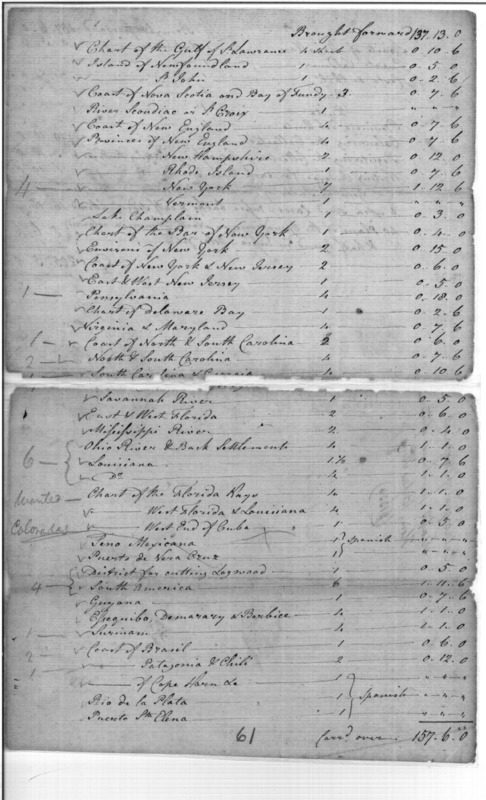 Brought forward 137.13.0
✓ Chart of the Gulf of St Lawrence 4 Sheets 0.10.6
✓ Island of Newfoundland 1 0.5.0
✓ St John 1 0.2.6
✓ Coast of Nova Scotia and Bay of Fundy 3 0.7.6
River Scoudiac or St Croix 1 " " "
✓ Coast of New England 4 0.7.6
✓ Provinces of New England 4 0.7.6
✓ New Hampshire 2 0.12.0
✓ Rhode Island 1 0.7.6
4 ✓ New York 7 1.12.6
✓ Vermont 1 " " "
Lake Champlain 1 0.3.0
✓ Chart of the Bar of New York 1 0.4.0
✓ Environs of New York 2 0.15.0
✓ Coast of New York & New Jersey 2 0.6.0
✓ East & West New Jersey 1 0.5.0
1 ✓ Pensylvania 4 0.18.0
✓ Chart of Delaware Bay 1 0.2.6
✓ Virginia & Maryland 4 0.7.6
1 ✓ Coast of North & South Carolina 2 0.6.0
2 ✓ North & South Carolina 4 0.7.6
✓ South Carolina & Georgia 4 0.10.6
✓ Savannah River 1 0.5.0
✓ East & West Florida 2 0.6.0
✓ Mississippi River 2 0.4.0
Ohio River & Back Settlements 4 1.1.0
6 { ✓ Louisiana 1½ 0.7.6
✓ Do 4 1.1.0
Wanted Chart of the Florida Kays 4 1.1.0
✓ West Florida & Louisiana 4 1.1.0
Colorados West End of Cuba 1 0.5.0
✓ Seno Mexicana 1 } Spanish " " "
✓ Puerto de Vera Cruz 1 " " "
✓ District for cutting Logwood 1 0.5.0
4 { ✓ South America 6 1.11.6
Guyana 1 0.7.6
✓ Essequibo, Demarary & Berbice 4 1.1.0
1 ✓ Surinam 4 1.1.0
2 ✓ Coast of Brasil 1 0.6.0
✓ Patagonia & Chili 2 0.12.0
1 ✓ of Cape Horn &c 1 " " "
Rio de la Plata 1 } Spanish " " "
Puerto Sta Elena 1 " " "
61 Carrd over 157.6.0